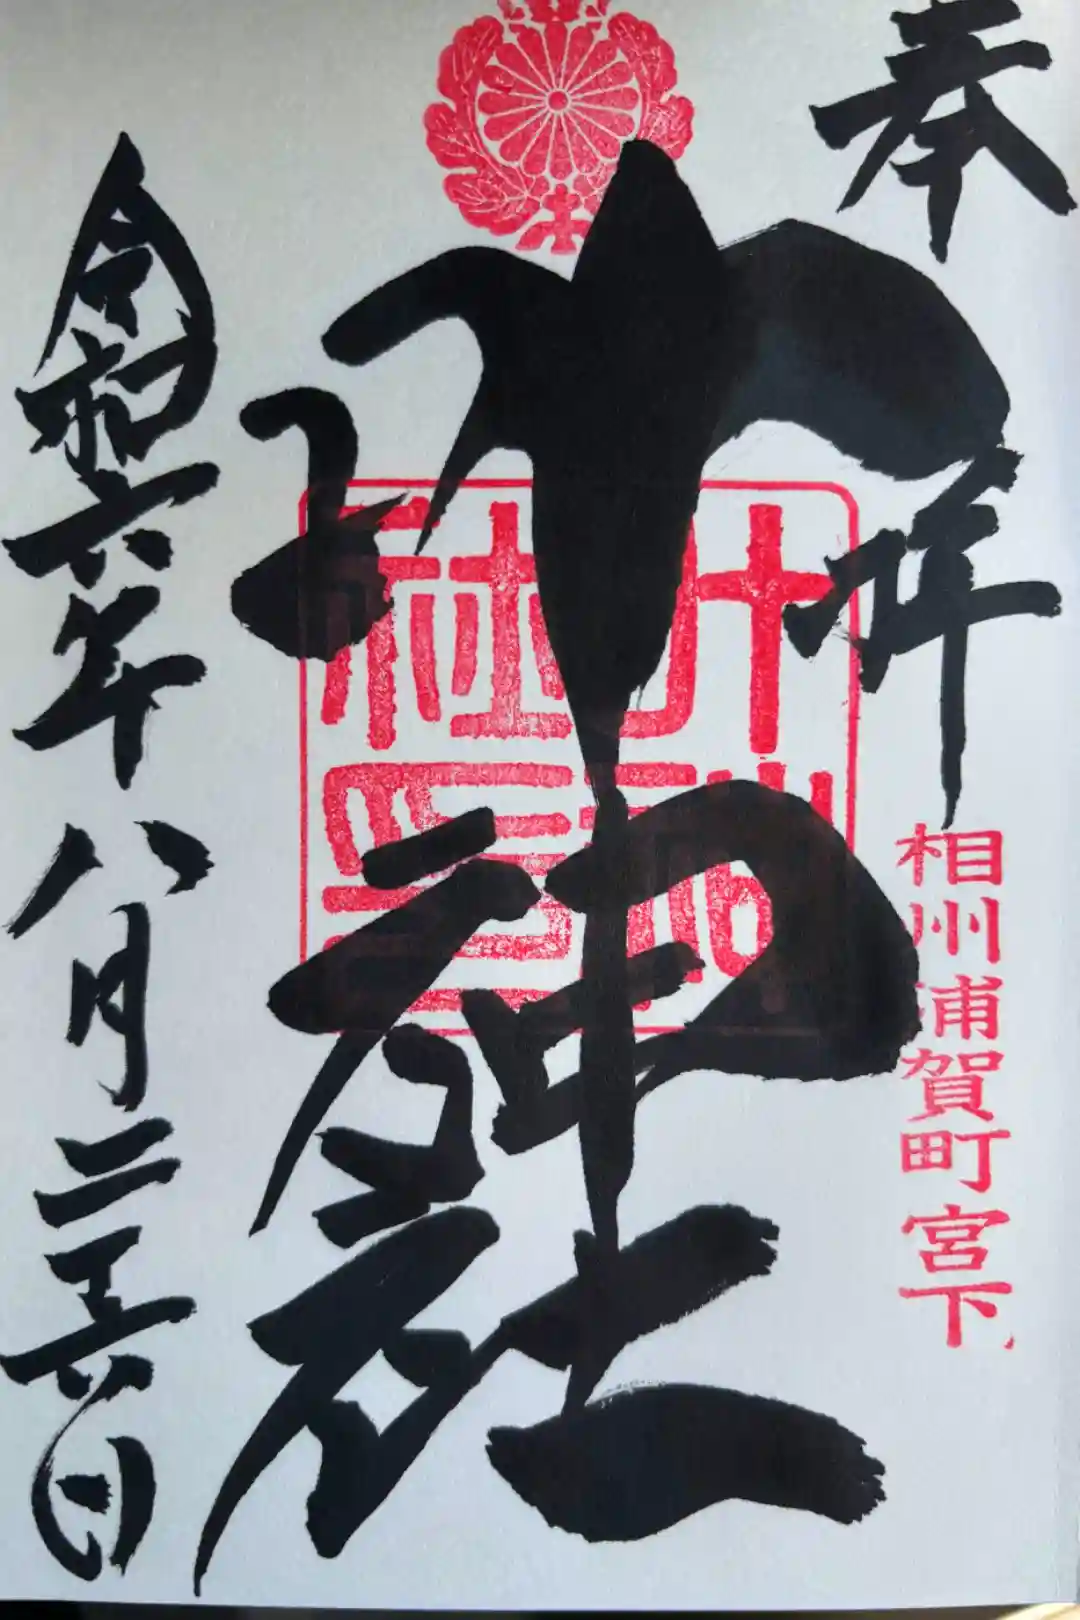 奉拝
相州浦賀町宮下
叶神社
叶神
社印
令和六年八月二十六日